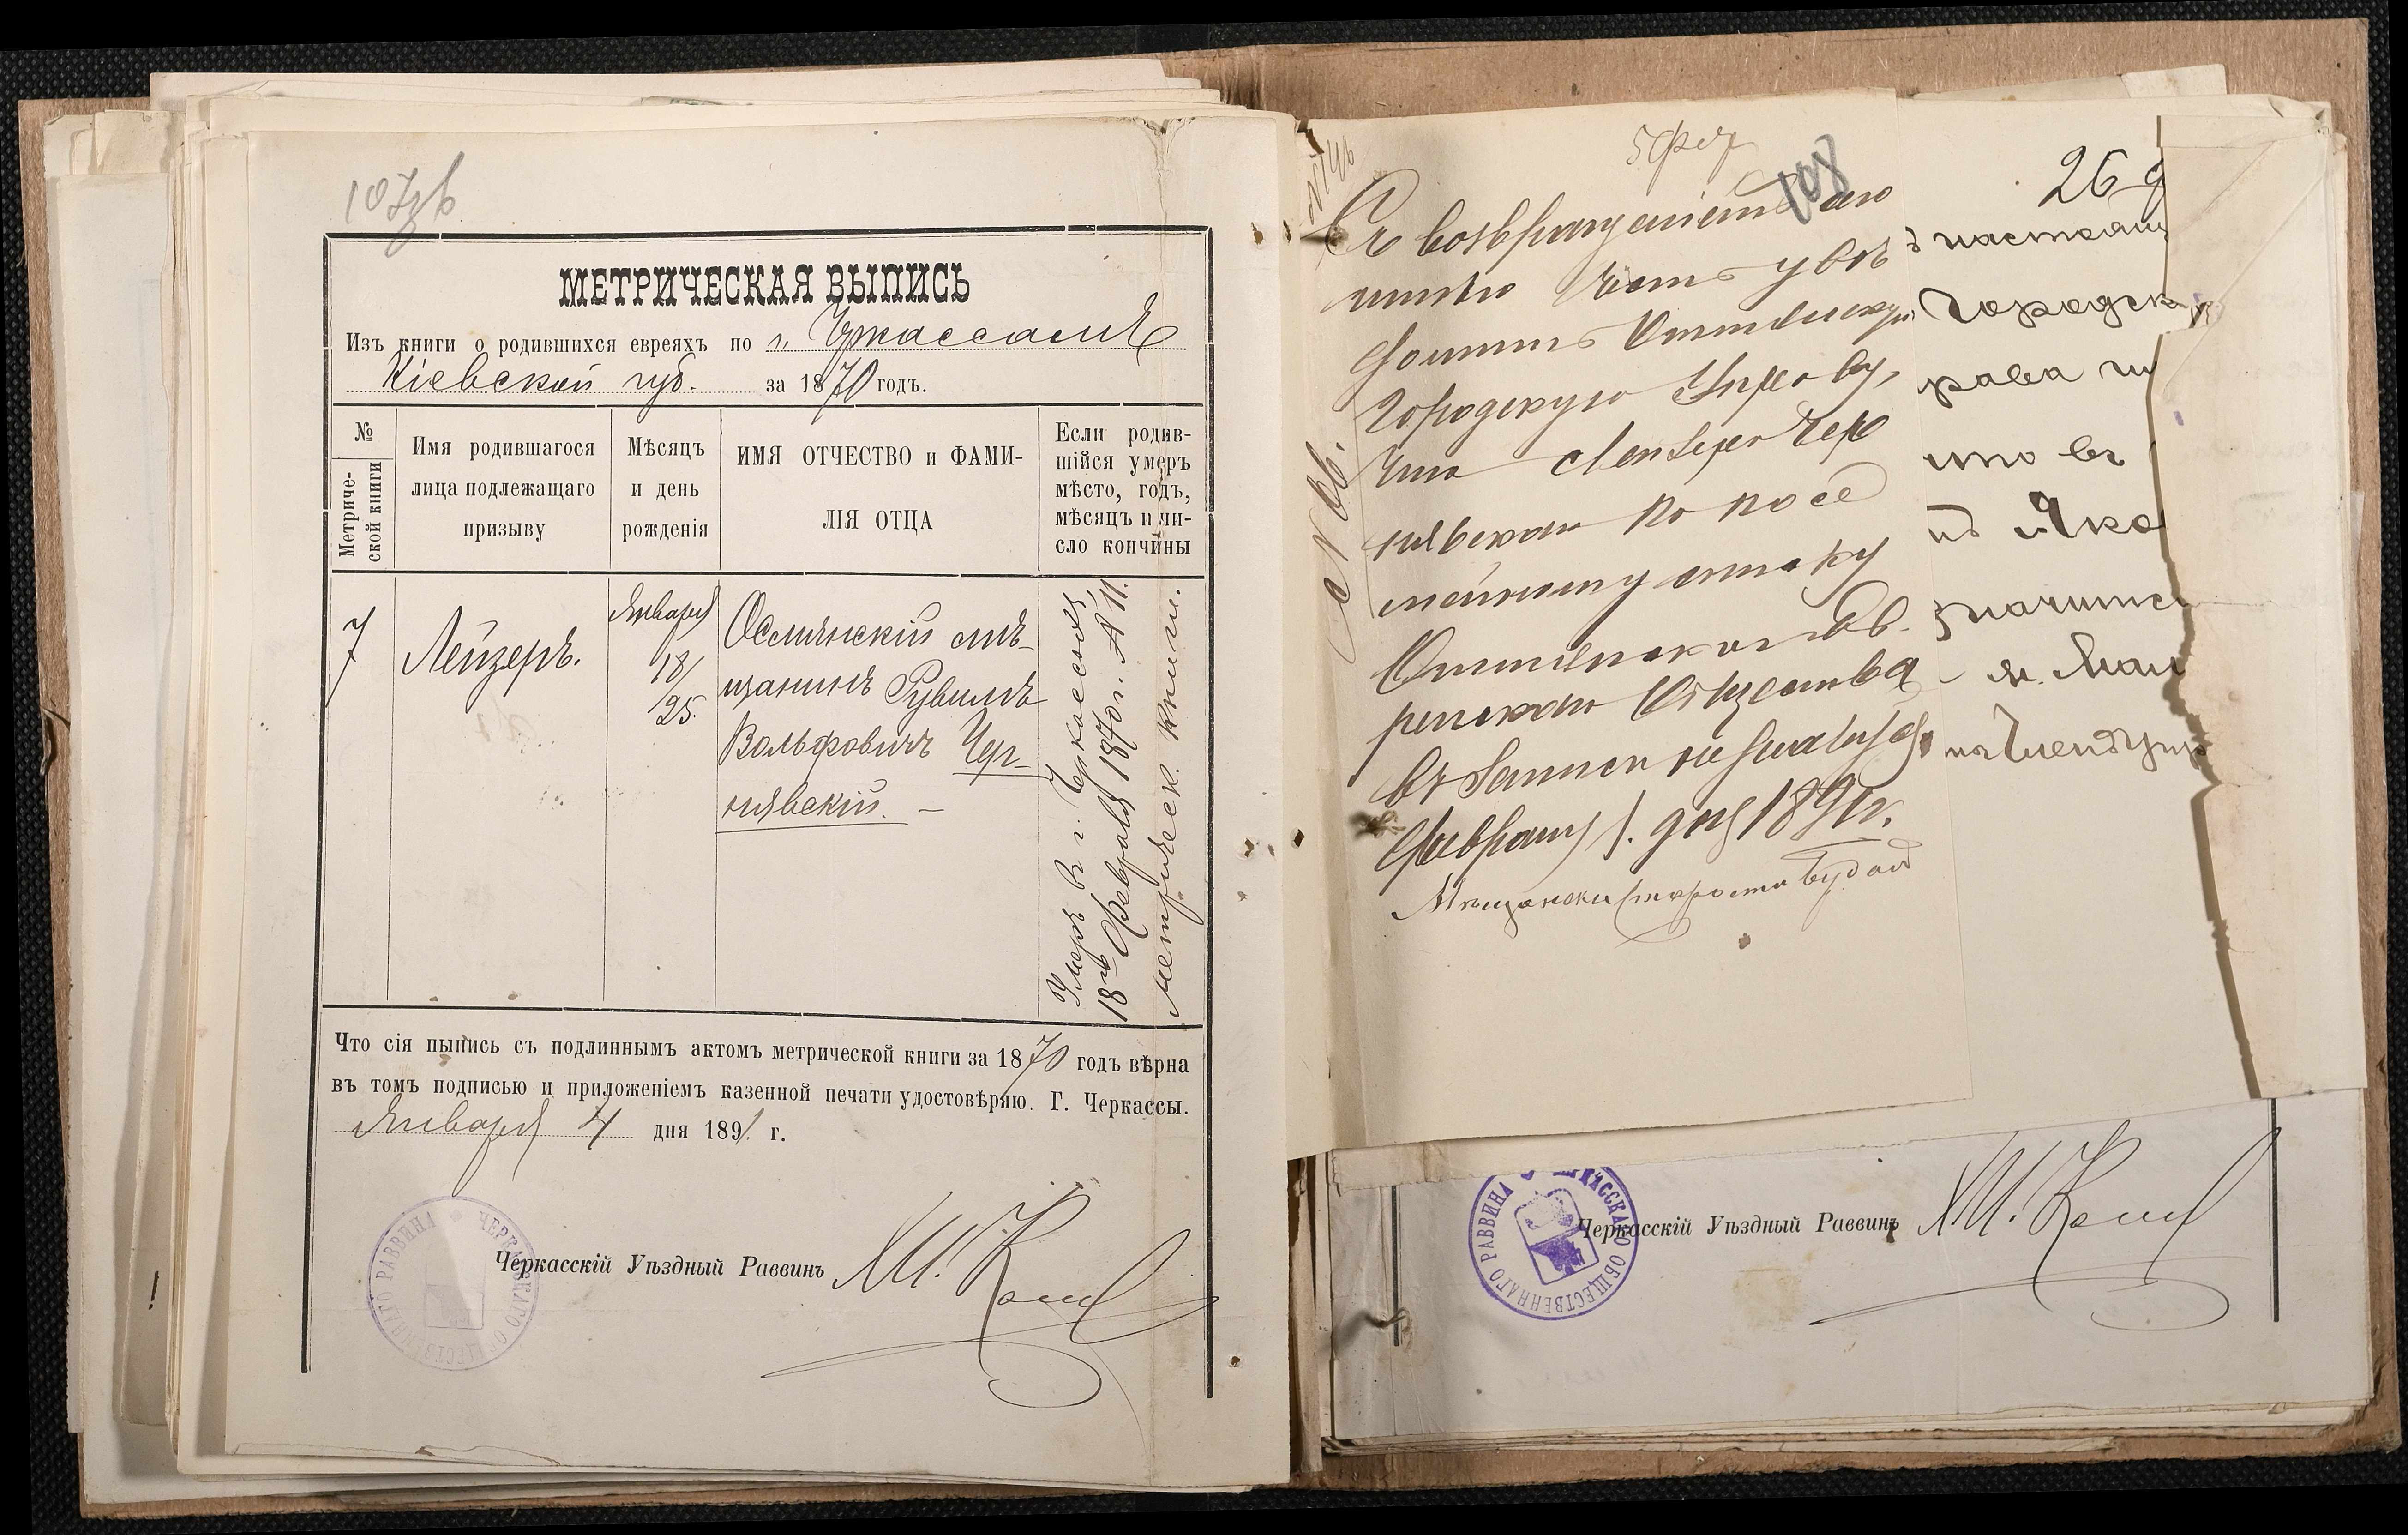 107зв
МЕТРИЧЕСКАЯ ВЫПИСЬ
Изъ книги о родившихся евреяхъ по г. Черкассамъ
Кіевской губ. за 1870 годъ.
№
Метриче-
ской книги
Имя родившагося
лица подлежащаго
призыву
Мѣсяцъ
и день
рожденія
ИМЯ ОТЧЕСТВО и ФАМИ-
ЛІЯ ОТЦА
Если родив-
шійся умеръ
мѣсто, годъ,
мѣсяцъ и чи-
сло кончины
7
Лейзеръ.
Января
18/
25.
мѣ-
щанинъ Рувимъ
Вольфовичъ Чер-
нявскій. —
Умеръ въ г. Черкассахъ
18го Февраля 1870 г. А 11.
метрическ. книги.
Что сія выпись съ подлиннымъ актомъ метрической книги за 1870 годъ вѣрна
въ томъ подписью и приложеніемъ казенной печати удостовѣряю. Г. Черкассы.
Января 4 дня 1891 г.
ЧЕРКАССКАГО ОБЩЕСТВЕННАГО РАВВИНА
Черкасскій Уѣздный Раввинъ
108
Съ возвращеніемъ сего
имѣю честь увѣ
домить
Городскую Управу,
что Лейзера Чер
нявскаго по посе
мейному списку
Ев.
рейскаго Общества
въ записи не значится.
Февраля 1. дня 1891 г.
Мѣщанскій староста
26
настоящ
Городск
рава
что въ
значится
м.
ЧЕРКАССКАГО ОБЩЕСТВЕННАГО РАВВИНА
Черкасскій Уѣздный Раввинъ